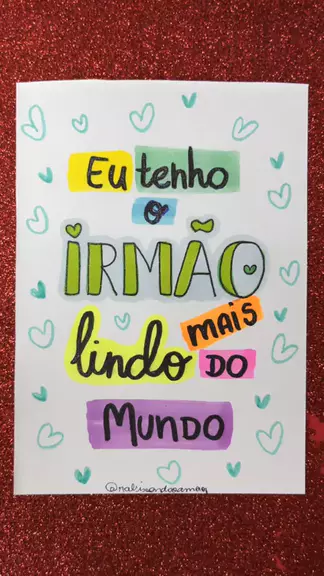 Eu tenho
o
IRMÃO
mais
lindo DO
MUNDO